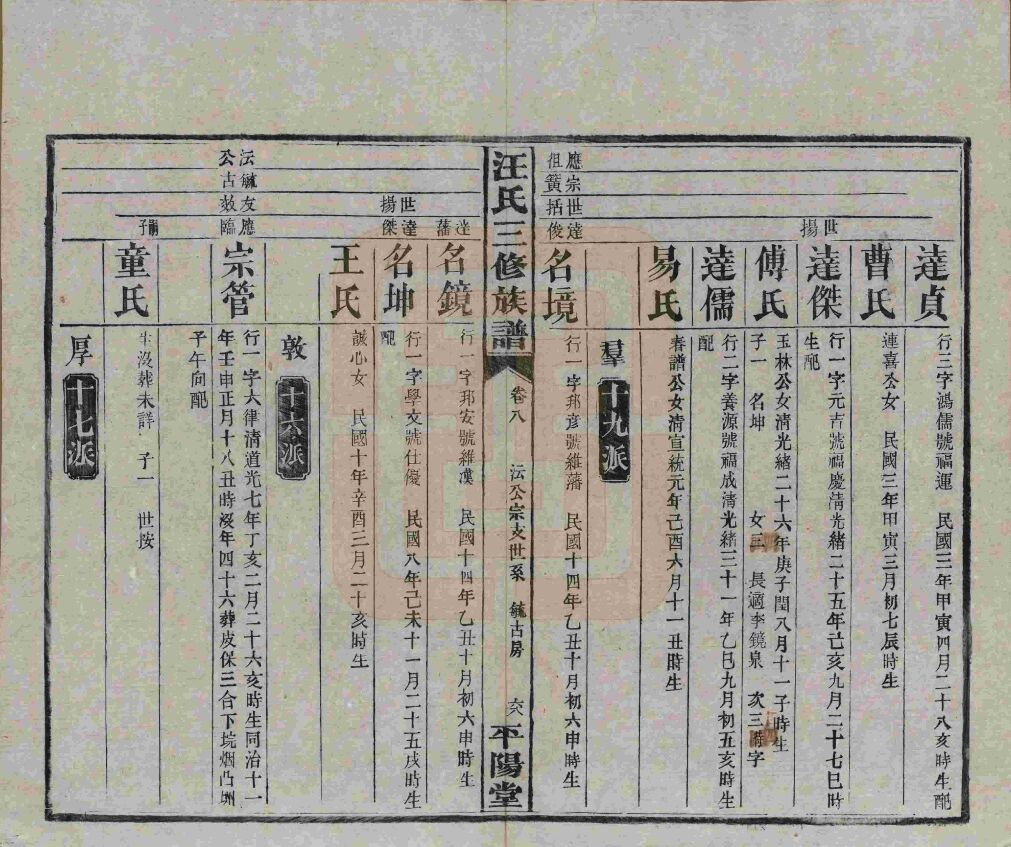 達貞
行三字鴻儒號福運　民國三年甲寅四月二十八亥時生配
曹氏
連喜公女　民國三年甲寅三月初七辰時生
世揚
達傑
行一字元吉號福慶清光緒二十五年己亥九月二十七巳時
生配
傅氏
玉林公女清光緒二十六年庚子閏八月十一子時生
子一　名坤　女三　長適李鏡泉　次三待字
達儒
行二字養源號福成清光緒三十一年乙巳九月初五亥時生
配
易氏
春譜公女清宣統元年己酉六月十一丑時生
羣
十九派
應宗世達
徂簧括俊
名境
行一字邦彥號維藩　民國十四年乙丑十月初六申時生
汪氏三修族譜
卷八
沄公宗支世系　毓古房
六八
平陽堂
達藩
名鏡
行一字邦安號維漢　民國十四年乙丑十月初六申時生
世達
揚傑
名坤
行一字學文號仕俊　民國八年己未十一月二十五戌時生
配
王氏
誠心女　民國十年辛酉三月二十亥時生
敦
十六派
沄毓友應
公古效臨
宗管
行一字大律清道光七年丁亥二月二十六亥時生同治十一
年壬申正月十八丑時歿年四十六葬皮保三合下垸烟凸洲
子午向配
嗣子
童氏
生沒葬未詳　子一　世按
厚
十七派